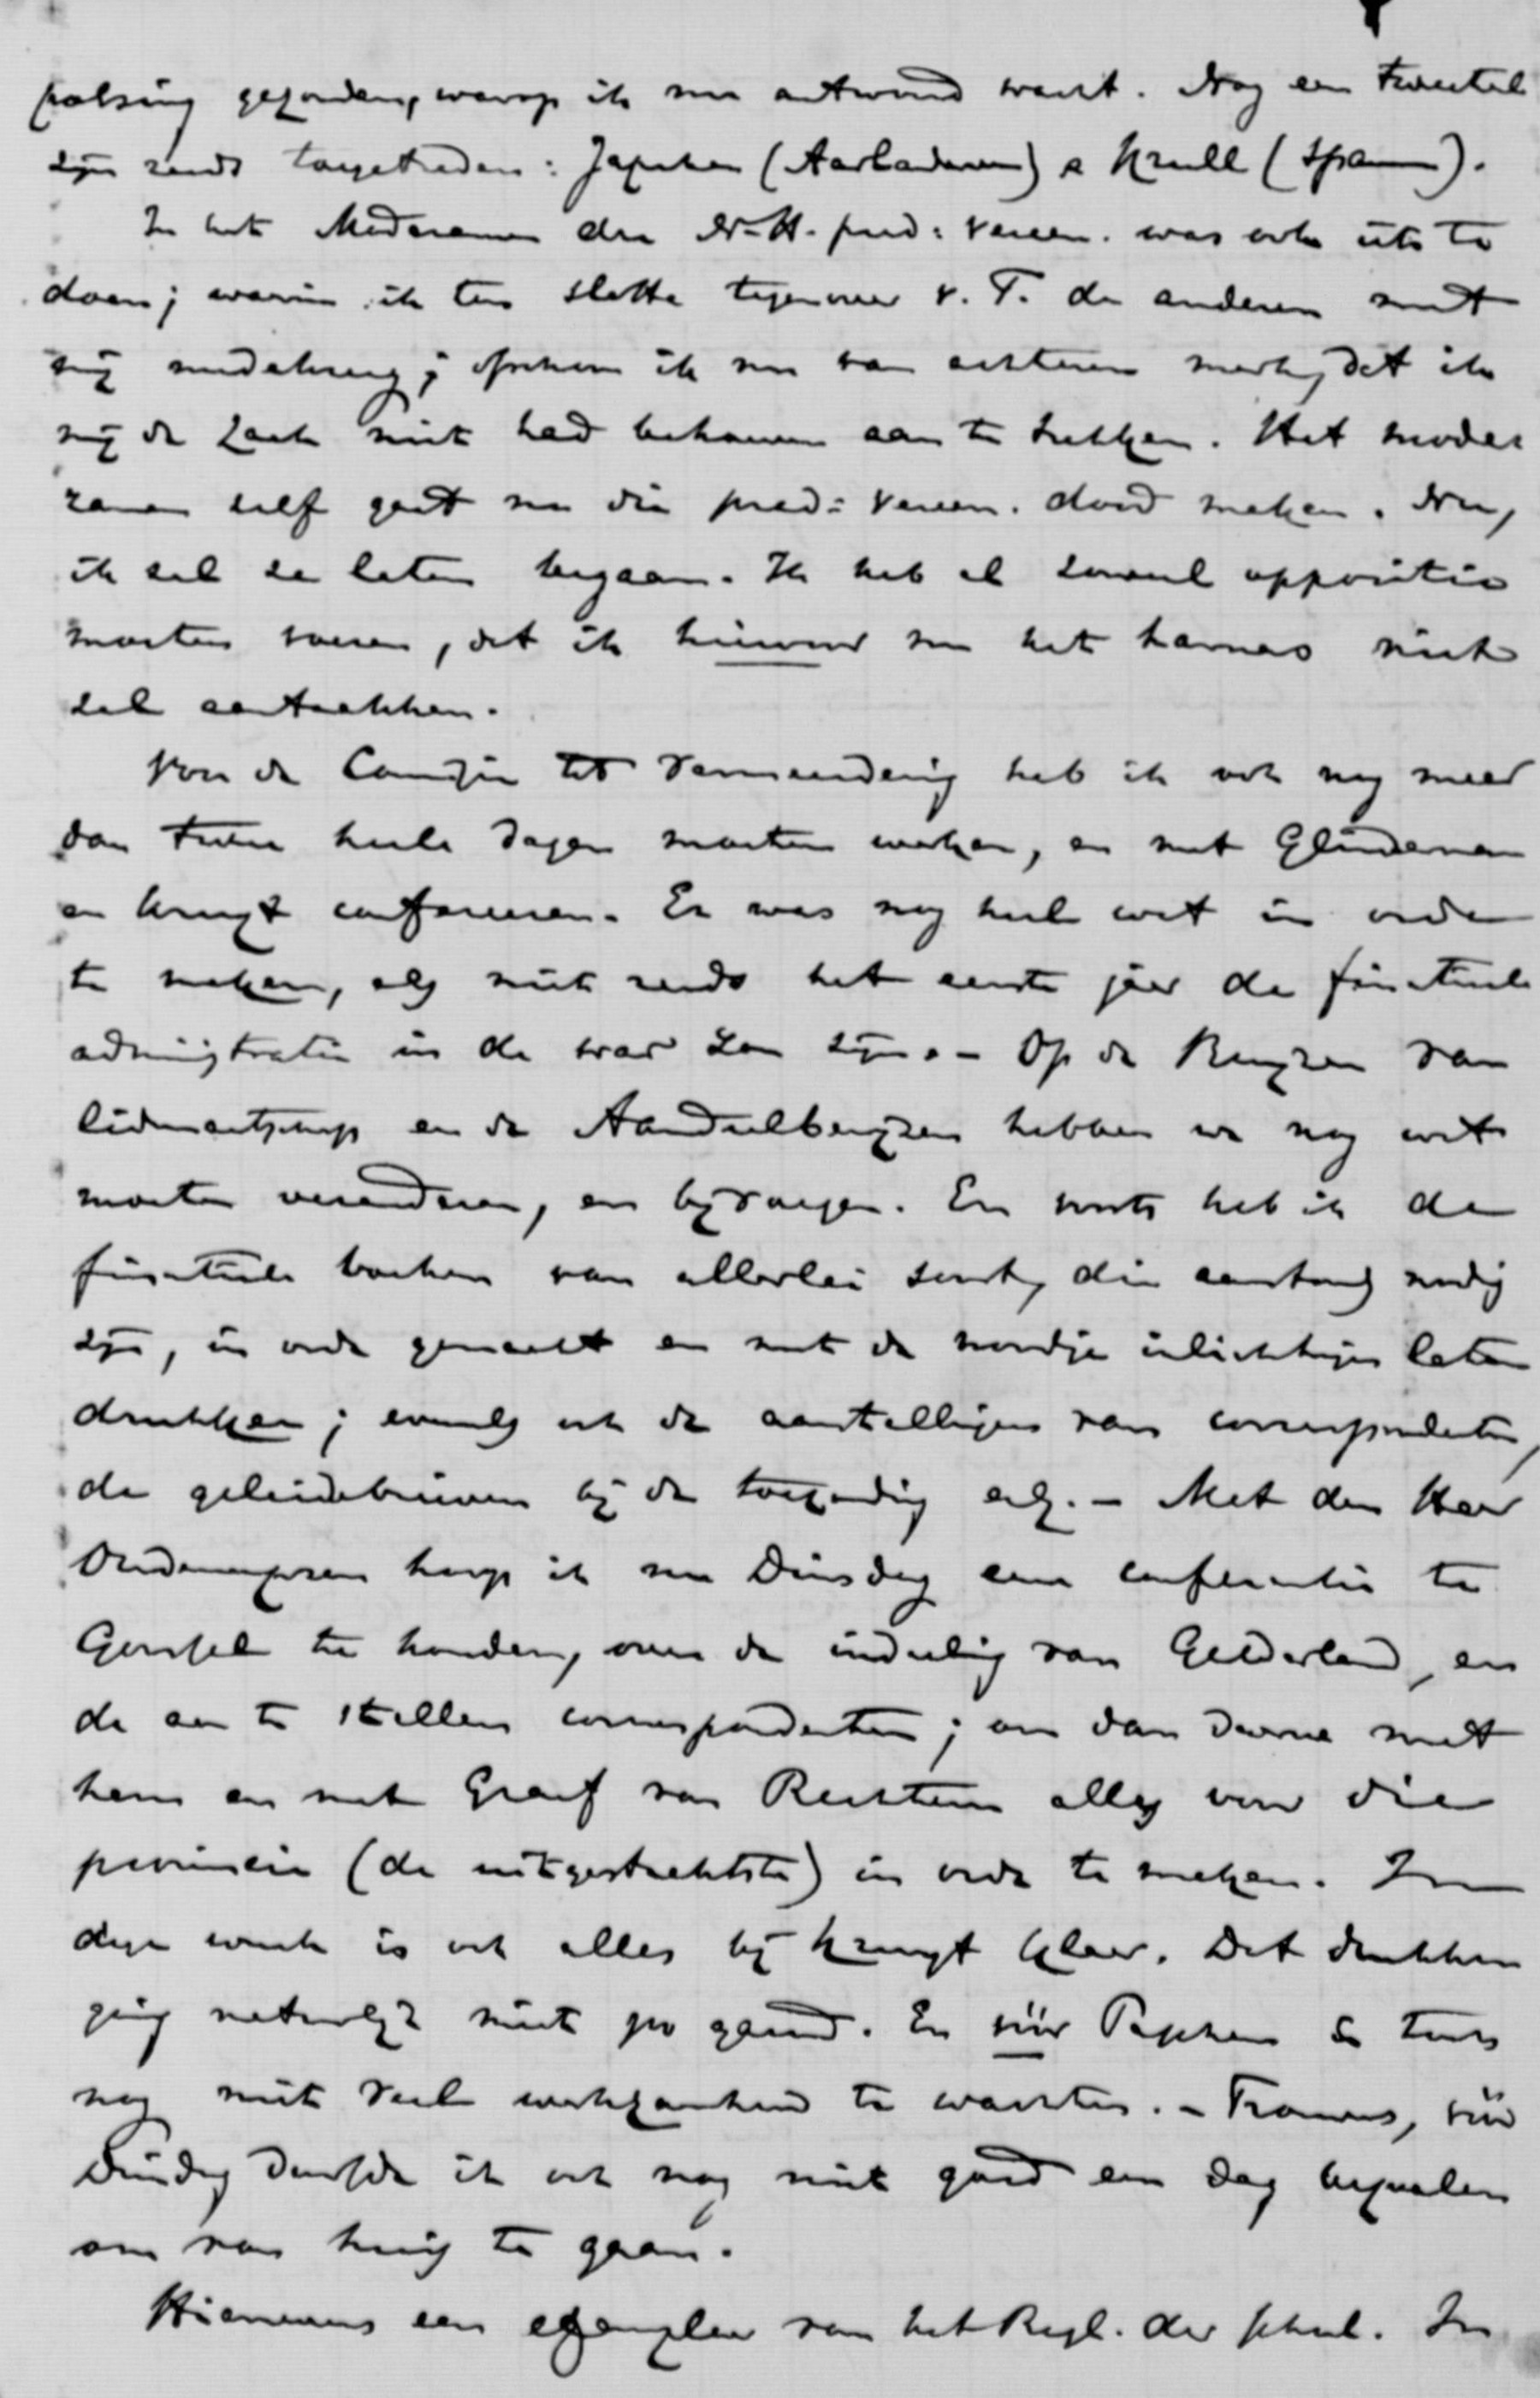 gezonden, waarop ik nu antwoord wacht. Nog een tweetal
zijn reeds toegetreden: Japchen (Aarlanderveen) & Krull (Spanbroek).
In het Moderamen der N.-H. pred: Vereen. was ook iets te
doen; waarin ik ten slotte tegenover v. T. de anderen met
mij medekreeg; ofschoon ik nu van achteren merk, dat ik
mij de zaak niet had behoeven aan te trekken. Het moderamen
zelf gaat nu die pred: Vereen. dood maken. Nu,
ik zal ze laten begaan. Ik heb al zooveel oppositie
moeten voeren, dat ik hiervoor nu het harnas niet
zal aantrekken.
Voor de Comissie tot Vermeerdering heb ik ook nog meer
dan twee heele dagen moeten werken, en met Glinderman
en Kruyt confereeren. Er was nog heel wat in orde
te maken, als niet reeds het eerste jaar de financieele
administratie in de war zou zijn. – Op de Bewijzen van
lidmaatschap en de Aandeelbewijzen hebben we nog wat
moeten veranderen, en bijvoegen. En voorts heb ik de
financieele boeken van allerlei soort, die aanstonds noodig
zijn, in orde gemaakt en met de noodige inlichtingen laten
drukken; evenals ook de aanstellingen van correspondenten,
de geleidebrieven bij de toezending enz. – Met den Heer
hoop ik nu Dinsdag een conferentie te
Gorssel te houden, over de indeeling van Gelderland, en
de aan te stellen correspondenten; om dan daarna met
hem en met Graaf van Rechteren alles voor die
provincie (de uitgestrektste) in orde te maken. In
deze week is ook alles bij Kruyt klaar. Dat drukken
ging natuurlijk niet zoo gauw. En vóór Paschen is toch
nog niet veel werkzaamheid te wachten. – Trouwens, vóór
Dinsdag durfde ik ook nog niet goed een dag bepalen
om van huis te gaan.
Hiernevens een exemplaar van het Regl. der school. In